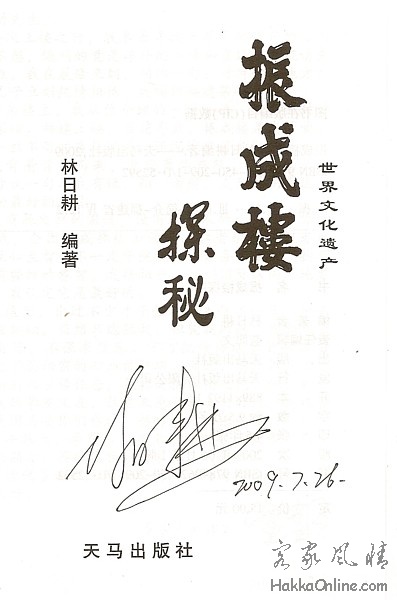 世界文化遗产
振成樓
探秘
林日耕 编著
林日耕
2009.7.26.
天马出版社
客家风情
HakkaOnline.com